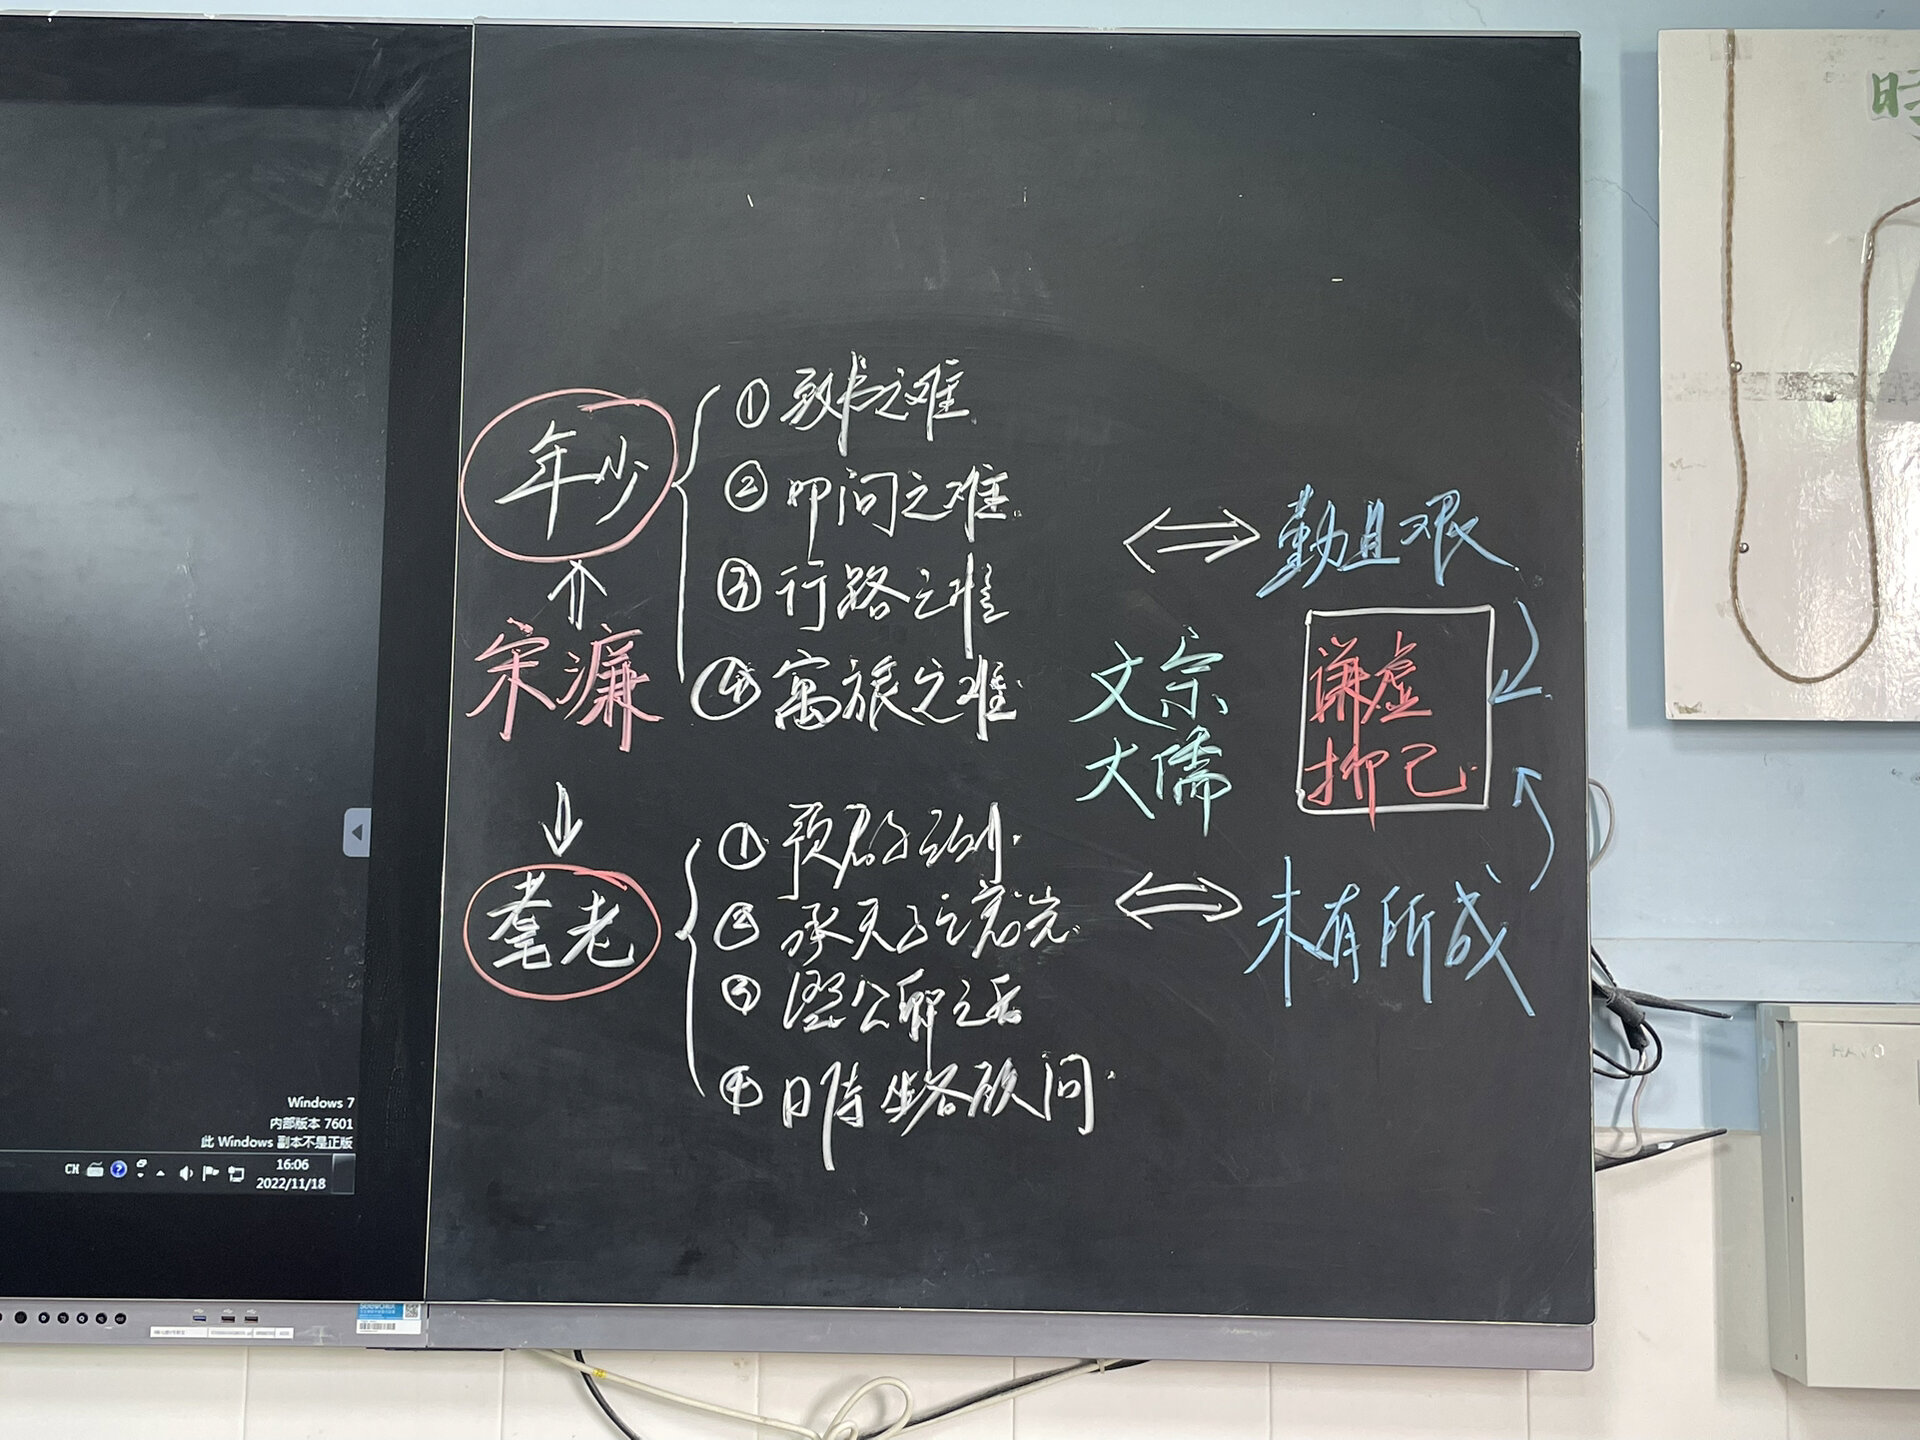 年少
① 致书之难
② 叩问之难
③ 行路之难
④ 寓旅之难
宋濂
耄老
① 预君子之列
② 承天子之宠光
③ 缀公卿之后
④ 日侍坐备顾问
文宗
大儒
勤且艰
谦虚
抑己
未有所成
Windows 7
内部版本 7601
此 Windows 副本不是正版
CH
16:06
2022/11/18
HAVO